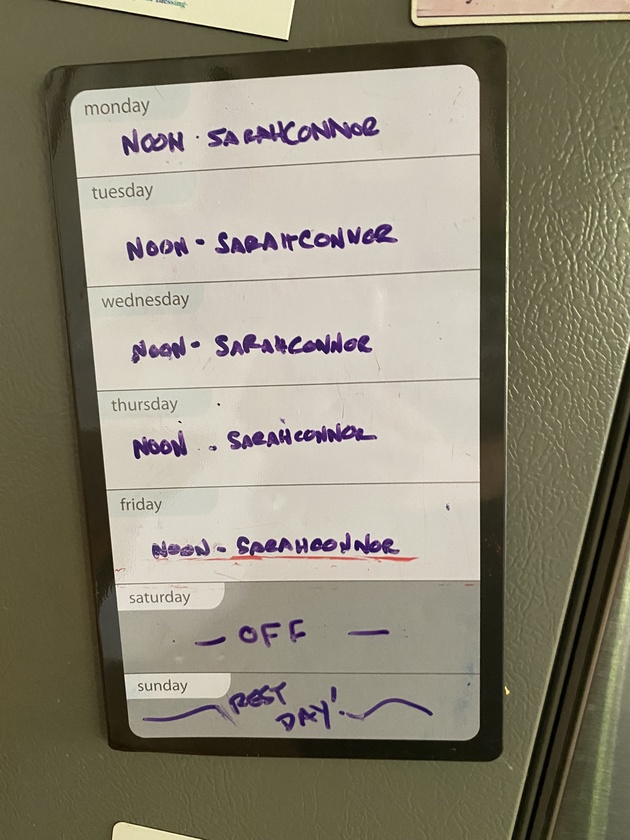 Blessing
monday
NOON · SARAHCONNOR
tuesday
NOON - SARAHCONNOR
wednesday
NOON - SARAHCONNOR
thursday
NOON . SARAHCONNOR
friday
NOON - SARAHCONNOR
saturday
— OFF —
sunday
REST
DAY!